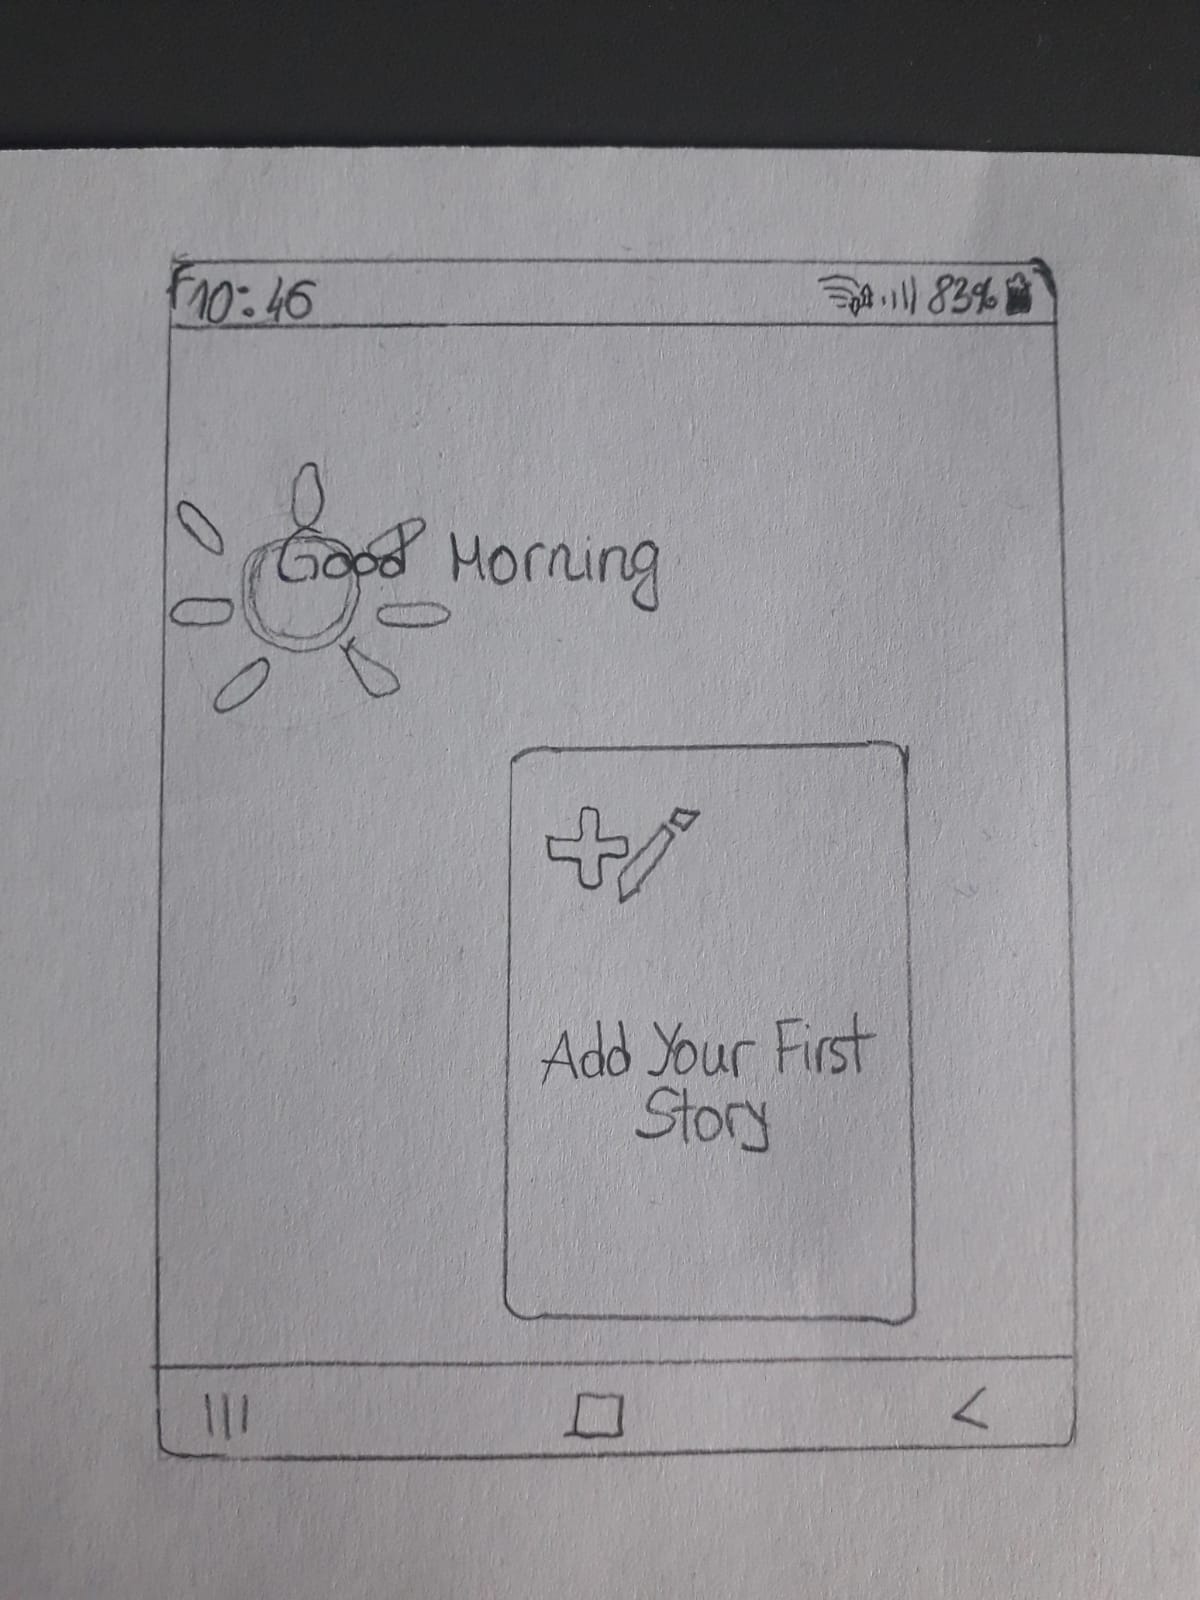 10:46
83%
Good Morning
Add Your First
Story